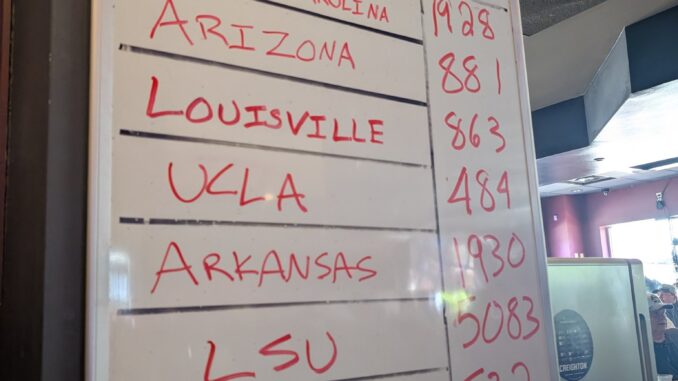 1928
ARIZONA 881
LOUISVILLE 863
UCLA 484
ARKANSAS 1930
LSU 5083
CREIGHTON